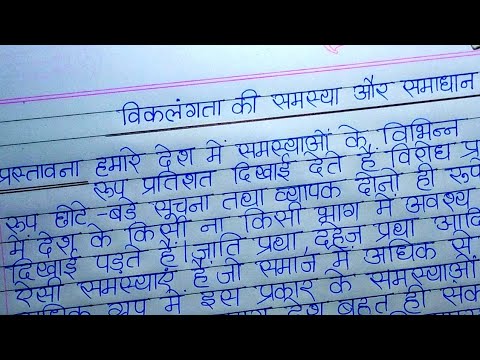 विकलंगता की समस्या और समाधान
प्रस्तावना हमारे देश में समस्याओं के विभिन्न
रूप प्रतिशत दिखाई देते है विरोध प्र
रूप छोटे-बडे सूचना तथा व्यापक दोनो ही रूप
में देश के किसी ना किसी भाग में अवश्य
दिखाई पड़ते हैं। जाति प्रथा, दहेज प्रथा आदि
ऐसी समस्याएं हैं जो समाज में अधिक से
रूप में इस प्रकार के समस्याओं
देश बहुत ही